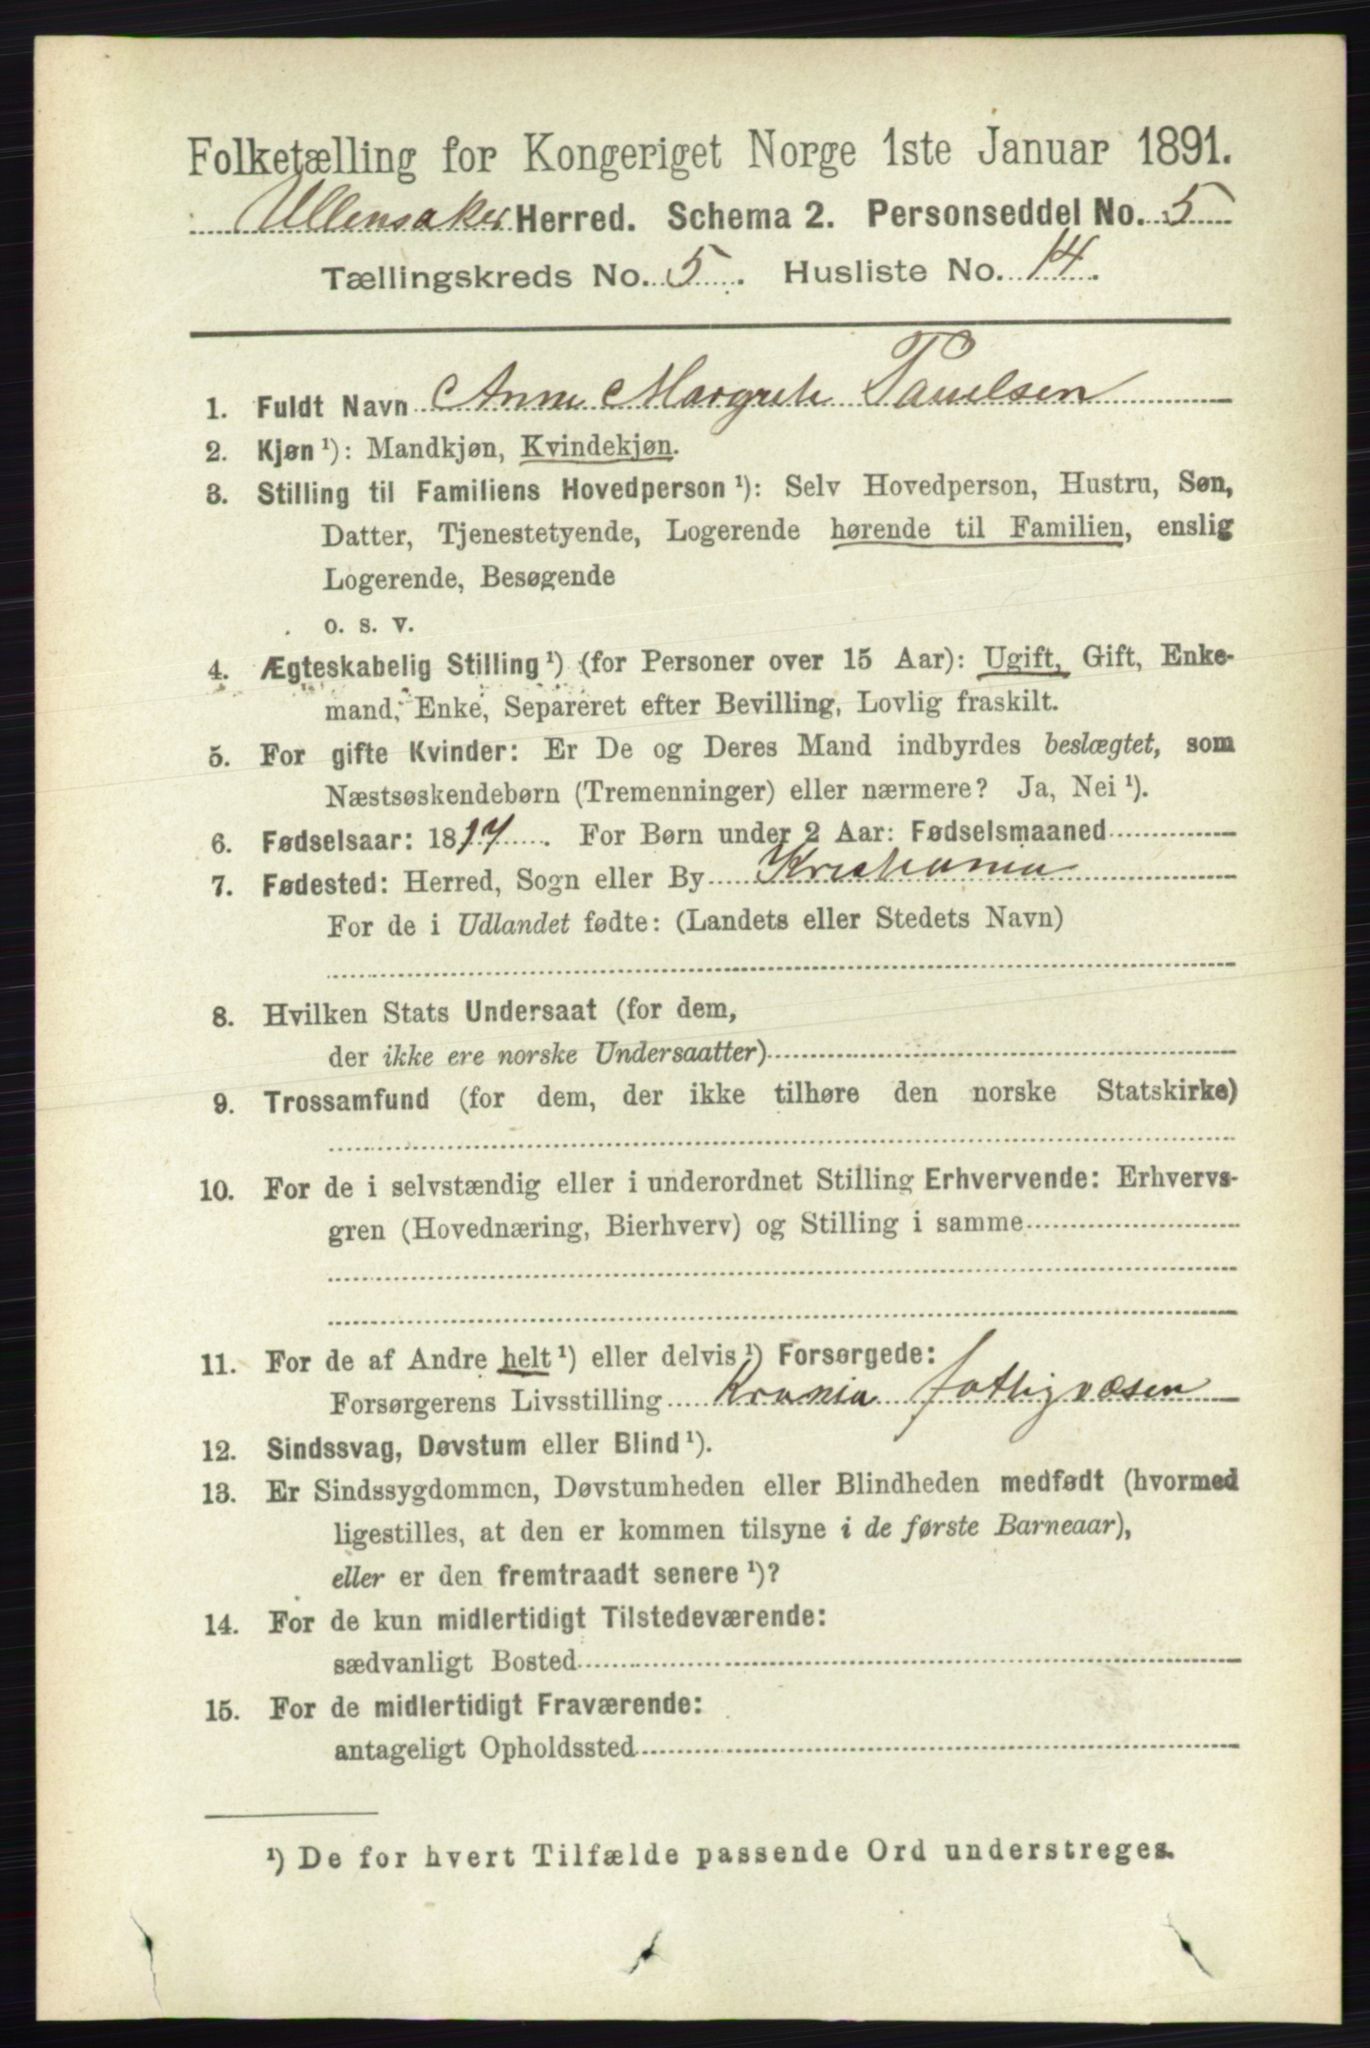 Folketælling for Kongeriget Norge 1ste Januar 1891.
Ullensaker Herred. Schema 2. Personseddel No. 5
Tællingskreds No. 5. Husliste No. 14.
1. Fuldt Navn Anne Margrete Paulsen
2. Kjøn ¹): Mandkjøn, Kvindekjøn.
3. Stilling til Familiens Hovedperson ¹): Selv Hovedperson, Hustru, Søn,
Datter, Tjenestetyende, Logerende hørende til Familien, enslig
Logerende, Besøgende
o. s. v.
4. Ægteskabelig Stilling ¹) (for Personer over 15 Aar): Ugift, Gift, Enke-
mand, Enke, Separeret efter Bevilling, Lovlig fraskilt.
5. For gifte Kvinder: Er De og Deres Mand indbyrdes beslægtet, som
Næstsøskendebørn (Tremenninger) eller nærmere? Ja, Nei ¹).
6. Fødselsaar: 1817. For Børn under 2 Aar: Fødselsmaaned
7. Fødested: Herred, Sogn eller By Kristiania
For de i Udlandet fødte: (Landets eller Stedets Navn)
8. Hvilken Stats Undersaat (for dem,
der ikke ere norske Undersaatter)
9. Trossamfund (for dem, der ikke tilhøre den norske Statskirke)
10. For de i selvstændig eller i underordnet Stilling Erhvervende: Erhvervs-
gren (Hovednæring, Bierhverv) og Stilling i samme
11. For de af Andre helt ¹) eller delvis ¹) Forsørgede:
Forsørgerens Livsstilling Krania fattigvæsen
12. Sindssvag, Døvstum eller Blind ¹).
13. Er Sindssygdommen, Døvstumheden eller Blindheden medfødt (hvormed
ligestilles, at den er kommen tilsyne i de første Barneaar),
eller er den fremtraadt senere ¹)?
14. For de kun midlertidigt Tilstedeværende:
sædvanligt Bosted
15. For de midlertidigt Fraværende:
antageligt Opholdssted
¹) De for hvert Tilfælde passende Ord understreges.